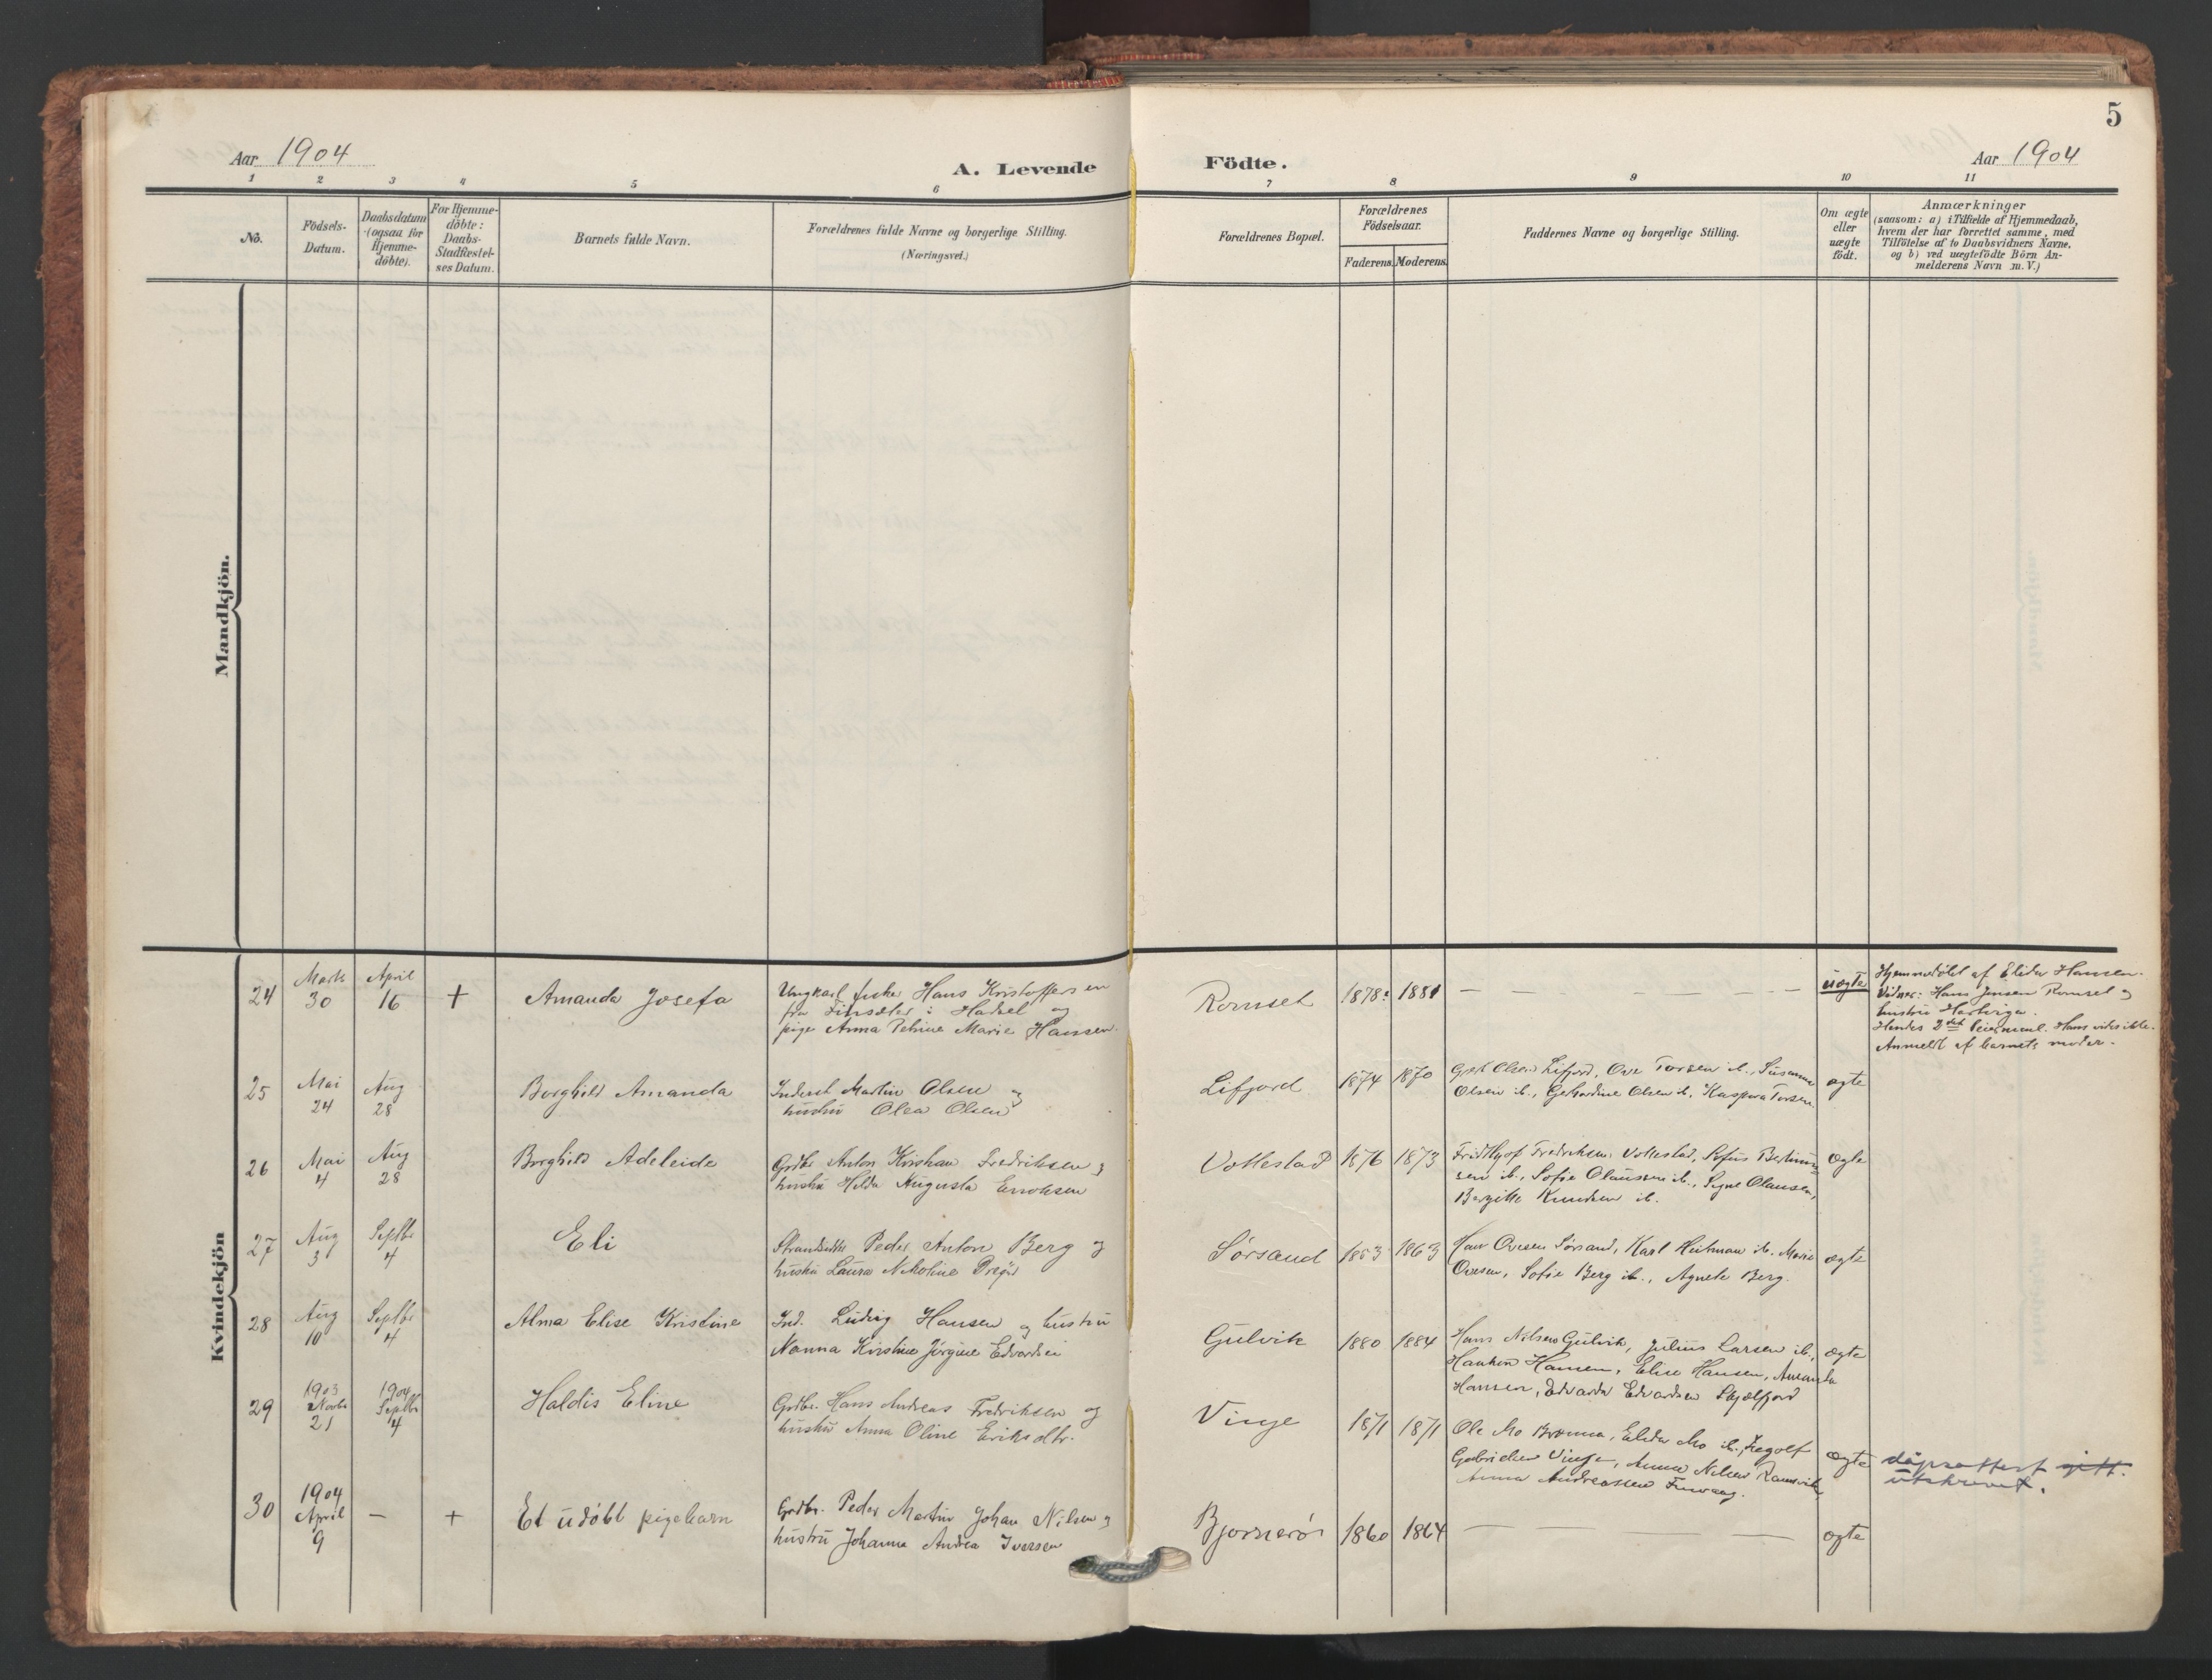 5
Aar 1904
A. Levende Födte.
Aar 1904
1 2 3 4 5 6 7 8 9 10 11
No.
Födsels-
Datum.
Daabsdatum
(ogsaa for
Hjemme-
döbte).
For Hjemme-
döbte:
Daabs-
Stadfæstel-
ses Datum.
Barnets fulde Navn.
Forældrenes fulde Navne og borgerlige Stilling.
(Næringsvei.)
Forældrenes Bopæl.
Forældrenes
Födselsaar.
Faderens. Moderens.
Faddernes Navne og borgerlige Stilling.
Om ægte
eller
uægte
födt.
Anmærkninger
(saasom: a) i Tilfælde af Hjemmedaab,
hvem der har forrettet samme, med
Tilföielse af to Daabsvidners Navne,
og b) ved uægtefödte Börn An-
melderens Navn m.V.)
Mandkjön.
Kvindekjön
24
Marts
30
April
16
+
Amanda Josefa
Ungkarl Hans Kristoffersen
fra i Hadsel og
pige Anna Petrine Marie Hansen.
Romset
1878? 1881
— — — —
uægte
Hjemmedøbt af Elida Hansen.
Vidner: Hans Jensen Romset og
hustru
Hendes 2det Hans vides ikke.
Anmeldt af barnets moder.
25
Mai
24
Aug
28
Borghild Amanda
Inderst Martin Olsen og
hustru Olea Olsen
Lifjord
1874 1870
Olsen Lifjord, Ove Torsen ib., Susanna
Olsen ib., Gerhardine Olsen ib., Kaspara Torsen.
ægte
26
Mai
4
Aug
28
Borghild Adeleide
Grdbr. Anton Kristian Fredriksen og
hustru Hilda Augusta
Vollestad
1876 1873
Fridthjof Fredriksen Vollestad, Sofus
sen ib., Sofie Claussen ib., Signe Clausen,
Birgitte Knudsen ib.
ægte
27
Aug
3
Septbr
4
Eli
Strandsidder Peder Anton Berg og
hustru Laura Nikoline
Sørsand
1853 1863
Hans Ovesen Sørsand, Karl Heitman ib. Marie
Ovesen, Sofie Berg ib., Agnete Berg.
ægte
28
Aug
10
Septbr
4
Alma Elise Kristine
Ind. Ludvig Hansen og hustru
Nanna Kirstine Jørgine Edvardsen
Gulvik
1880 1884
Hans Nilsen Gulvik, Julius Larsen ib.,
Haakon Hansen, Elise Hansen, Amanda
Hansen, Edvarda Edvardsen Skjelfjord
ægte
29
1903
Novbr
21
1904
Septbr
4
Haldis Eline
Grdbr. Hans Andreas Fredriksen og
hustru Anna Oline Eriksdtr.
Vinje
1871 1871
Ole Mo Brænna, Elida Mo ib., Ingolf
Gabrielsen Vinje, Anna Nilsen Ramsvik,
Anna Andreassen
ægte
dåpsattest gitt.
utskrevet.
30
1904
April
9
—
+
Et udøbt pigebarn
Grdbr. Peder Martin Johan Nilsen og
hustru Johanna Andrea Iversen
Bjornerø
1860 1864
— — — —
ægte